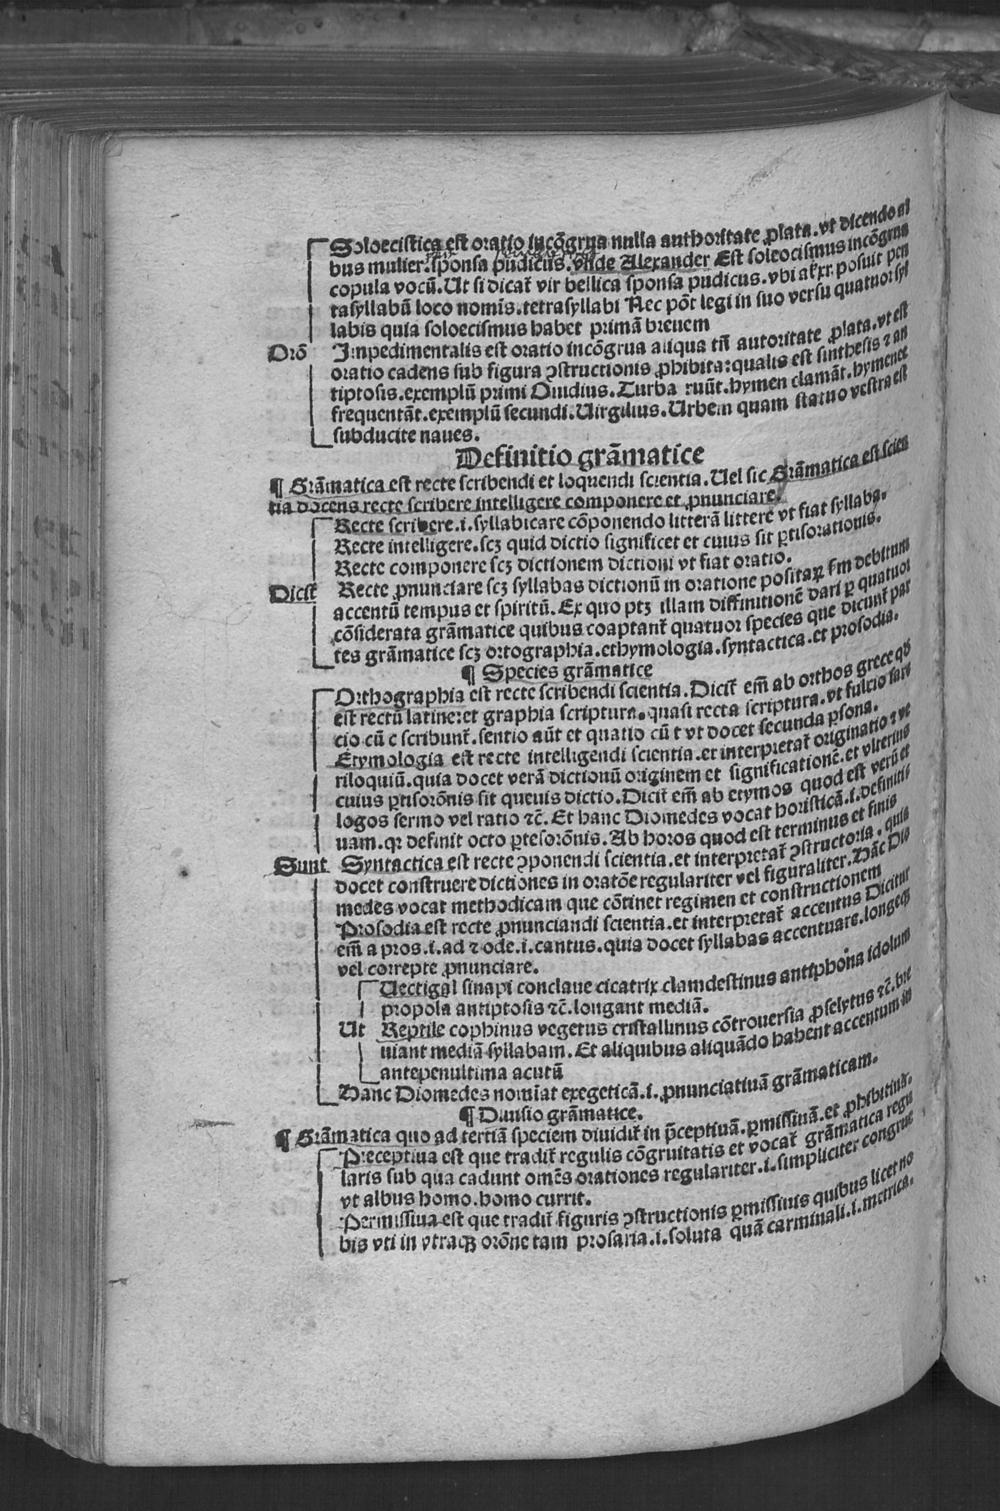 Soloecistica est oratio incõgrua nulla authoritate ꝓlata. vt dicendo al
bus mulier. sponsa pudicus. vñde Alexander Est soleocismus incõgrua
copula vocũ. Ut si dicat᷑ vir bellica sponsa pudicus. vbi posuit pen
tasyllabũ loco nomĩs. tetrasyllabi Nec põt legi in suo versu quatuor syl
labis quia soloecismus habet primã breuem
Orõ Impedimentalis est oratio incõgrua aliqua tñ autoritate ꝓlata. vt est
oratio cadens sub figura ꝯstructionis ꝓhibita: qualis est sinthesis ⁊ an
tiptosis. exemplũ primi Ouidius. Turba ruũt. hymen clamãt. hymenee
frequentãt. exemplũ secundi. Uirgilius. Urbem quam statuo vestra est
subducite naues.
Definitio grãmatice
¶ Grãmatica est recte scribendi et loquendi scientia. Uel sic Grãmatica est scien
tia docens recte scribere intelligere componere et ꝓnunciare.
Recte scribere. i. syllabicare cõponendo litterã littere vt fiat syllaba.
Recte intelligere. scꝫ quid dictio significet et cuius sit ꝑtisorationis.
Recte componere scꝫ dictionem dictioni vt fiat oratio.
Dicit᷑ Recte ꝓnunciare scꝫ syllabas dictionũ in oratione positaꝝ ẜm debitum
accentũ tempus et spiritũ. Ex quo ptꝫ illam diffinitionẽ dari ꝑ quatuor
cõsiderata grãmatice quibus coaptant᷑ quatuor species que dicunt᷑ par
tes grãmatice scꝫ ortographia. ethymologia. syntactica. et prosodia.
¶ Species grãmatice
Orthographia est recte scribendi scientia. Dicit᷑ em̃ ab orthos grece qđ
est rectũ latine: et graphia scriptura. quasi recta scriptura. vt fulcio sar
cio cũ c scribunt᷑. sentio aũt et quatio cũ t vt docet secunda ꝑsona.
Etymologia est recte intelligendi scientia. et interpretat᷑ originatio ⁊ ve
riloquiũ. quia docet verã dictionũ originem et significationẽ. et vlterius
cuius ꝑtisorõnis sit queuis dictio. Dicit᷑ em̃ ab etymos quod est verũ et
logos sermo vel ratio ⁊c̃. Et hanc Diomedes vocat horisticã. i. definiti
uam. qꝛ definit octo ꝑtesorõnis. Ab horos quod est terminus et finis
Sunt Syntactica est recte ꝯponendi scientia. et interpretat᷑ ꝯstructoria. quia
docet construere dictiones in oratõe regulariter vel figuraliter. Hãc Dio
medes vocat methodicam que cõtinet regimen et constructionem
Prosodia est recte ꝓnunciandi scientia. et interpretat᷑ accentus Dicitur
em̃ a pros. i. ad ⁊ ode. i. cantus. quia docet syllabas accentuare. longeqꝫ
vel correpte ꝓnunciare.
Uectigal sinapi conclaue cicatrix clamdestinus antiphona idolum
propola antiptosis ⁊c̃. longant mediã.
Ut Reptile cophinus vegetus cristallinus cõtrouersia ꝓselytus ⁊c̃. bre
uiant mediã syllabam. Et aliquibus aliquãdo habent accentum in
antepenultima acutũ
Hanc Diomedes nomĩat exegeticã. i. ꝓnunciatiuã grãmaticam.
¶ Diuisio grãmatice.
¶ Grãmatica quo ad tertiã speciem diuidit᷑ in p̃ceptiuã. ꝑmissiuã. et ꝓhibitiuã.
Preceptiua est que tradit᷑ regulis cõgruitatis et vocat᷑ grãmatica regu
laris sub qua cadunt omẽs orationes regulariter. i. simpliciter congrue
vt albus homo. homo currit.
Permissiua est que tradit᷑ figuris ꝯstructionis ꝑmissiuis quibus licet no
bis vti in vtraqꝫ orõne tam prosaria. i. soluta quã carminali. i. metrica.